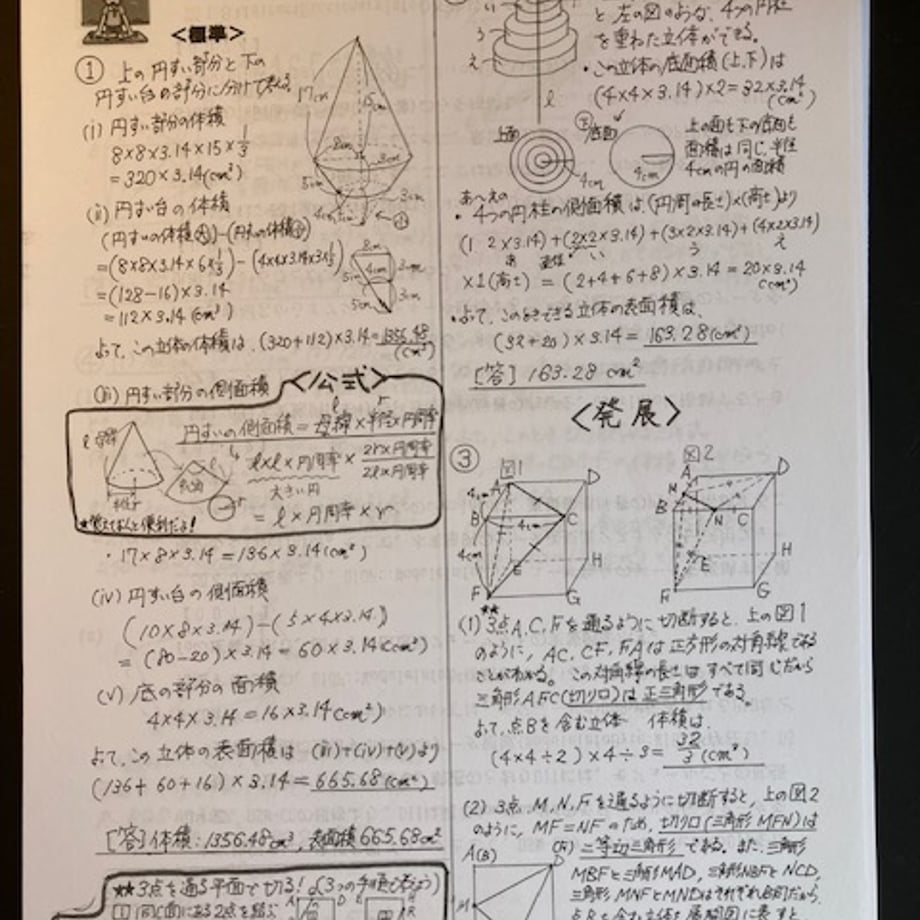 <標準>
① 上の円すい部分と下の
円すい台の部分に分けて考える。
(i) 円すい部分の体積
8×8×3.14×15×1/3
=320×3.14(cm³)
(ii) 円すい台の体積
(円すいの体積㊅)-(円すいの体積)
=(8×8×3.14×6×1/3)-(4×4×3.14×3×1/3)
=(128-16)×3.14
=112×3.14(cm³)
よって、この立体の体積は、(320+112)×3.14=1356.48
(cm³)
17cm
15cm
8cm
5cm
3cm
4cm
8cm
4cm
5cm
3cm
5cm
3cm
(iii) 円すい部分の側面積
<公式>
l r
円すいの側面積=母線×半径×円周率
l×l×円周率×2r×円周率/2l×円周率
大きい円
=l×円周率×r
l 母線
半径r
l
r
★覚えておくと便利だよ!
・17×8×3.14=136×3.14(cm²)
(iv) 円すい台の側面積
(10×8×3.14)-(5×4×3.14)
=(80-20)×3.14=60×3.14(cm²)
(v) 底の部分の面積
4×4×3.14=16×3.14(cm²)
よって、この立体の表面積は (iii)+(iv)+(v)より
(136+60+16)×3.14=665.68(cm²)
[答]体積:1356.48cm³, 表面積665.68cm²
★★3点を通る平面で切る!(3つの手順で考えよう)
① 同じ面にある2点を結ぶ
い
う
え
l
と左の図のような、4つの円柱
を重ねた立体ができる。
・この立体の底面積(上,下)は
(4×4×3.14)×2=32×3.14
(cm²)
上面
4cm
下
底面
4cm
上の面も下の底面も
面積は同じ、半径
4cmの円の面積
あ〜えの
・4つの円柱の側面積は、(円周の長さ)×(高さ)より
(1×2×3.14)+(2×2×3.14)+(3×2×3.14)+(4×2×3.14)
あ 直径 い う え
×1(高さ)=(2+4+6+8)×3.14=20×3.14
(cm²)
・よって、このときできる立体の表面積は、
(32+20)×3.14=163.28(cm²)
[答] 163.28 cm²
<発展>
③
図1
A
D
4cm
B
4cm
C
4cm
E
H
F
G
図2
A
D
M
B
N
C
E
H
F
G
(1) 3点A,C,Fを通るように切断すると、上の図1
のように、AC,CF,FAは正方形の対角線である
ことがわかる。この対角線の長さは、すべて同じだから
三角形AFC(切り口)は正三角形である。
よって、点Bを含む立体 体積は、
(4×4÷2)×4÷3=32/3(cm³)
(2) 3点M,N,Fを通るように切断すると、上の図2
のように、MF=NFのため、切り口(三角形MFN)は
二等辺三角形である。また、三角形
MBFと三角形MAD、三角形NBFとNCD、
三角形MNFとMNDはそれぞれ合同だから、
点Bを含む立体を展開図に表すと
A(B)
D
M